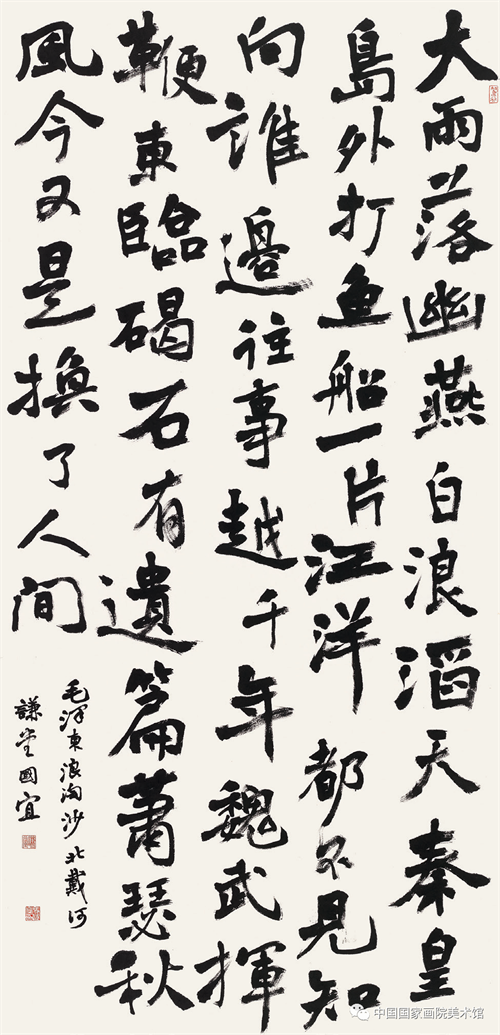 大雨落幽燕白浪滔天秦皇
島外打魚船一片汪洋都不見知
向誰邊往事越千年魏武揮
鞭東臨碣石有遺篇蕭瑟秋
風今又是換了人間
毛澤東浪淘沙北戴河
謙堂國宜
中国国家画院美术馆